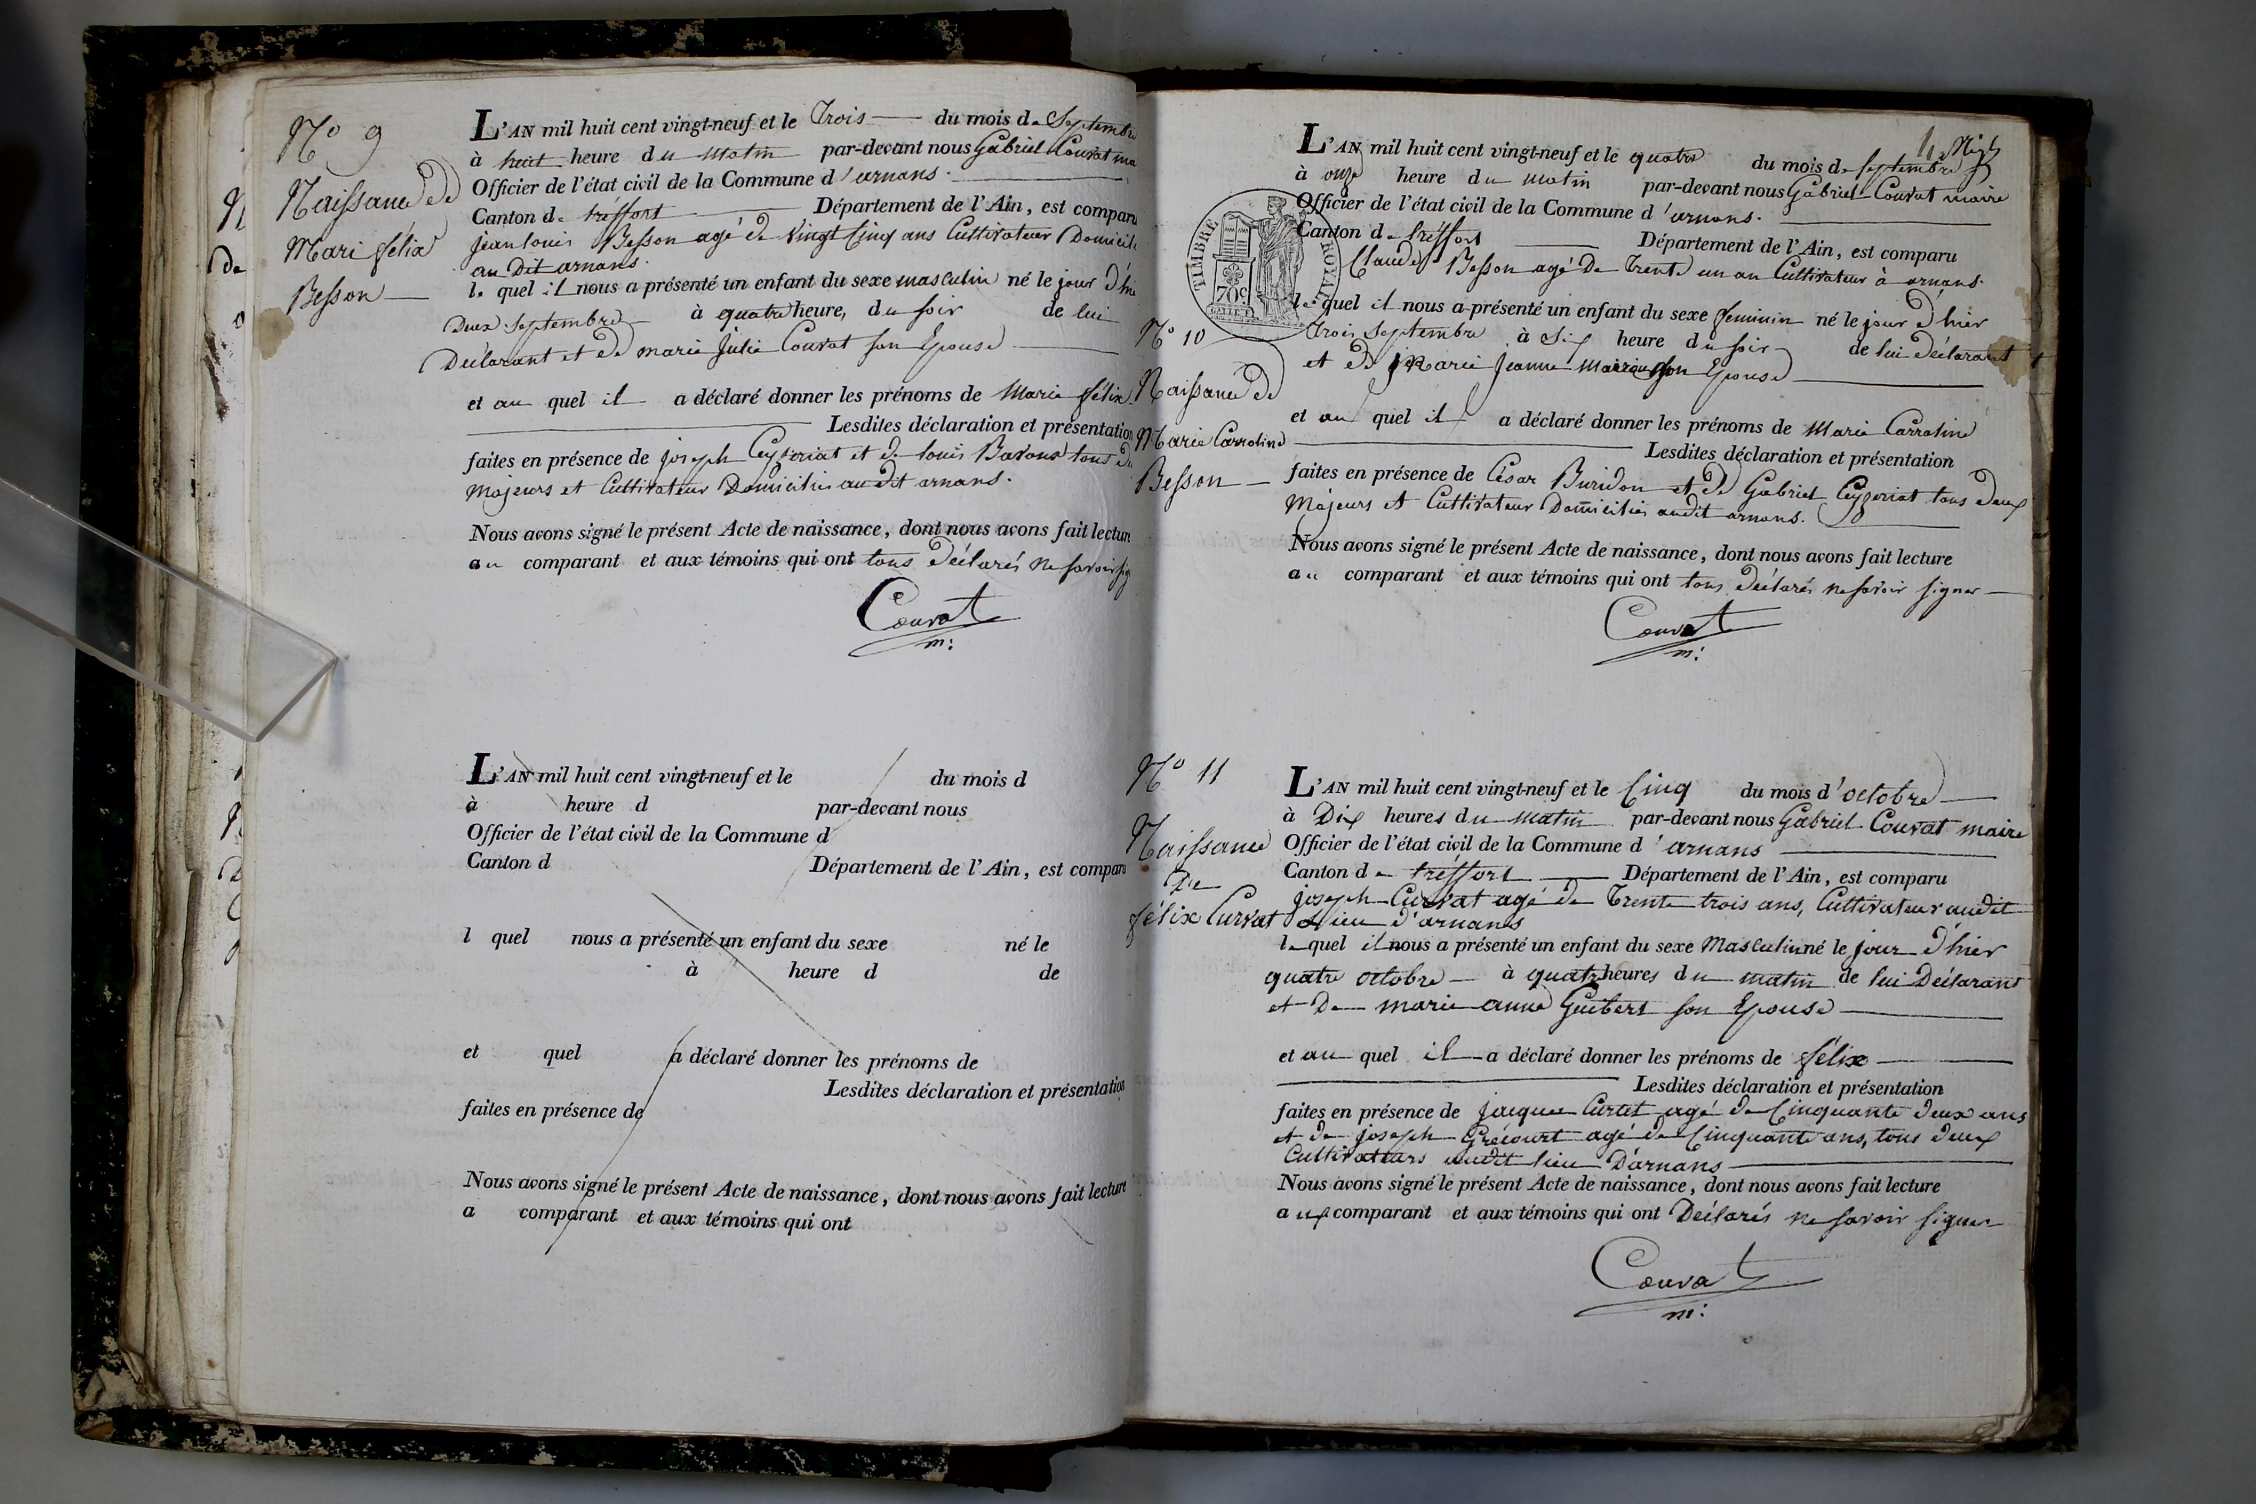 N° 9
Naissance de
Mari félix
Besson
L'AN mil huit cent vingt-neuf et le Trois du mois de Septembre
à huit heure du matin par-devant nous Gabriel Couvat
Officier de l'état civil de la Commune d'arnans.
Canton de tréffort Département de l'Ain, est comparu
jean louis Besson agé de vingt Cinq ans Cultivateur
au Dit arnans.
le quel il nous a présenté un enfant du sexe masculin né le jour
Deux septembre à quatre heure, du soir de lui
Déclarant et de marie julie Couvat son Epouse
et au quel il a déclaré donner les prénoms de Marie félix
Lesdites déclaration et présentation
faites en présence de joseph Ceyzeriat et de louis tous
Majeurs et Cultivateur Domiciliés au dit arnans.
Nous avons signé le présent Acte de naissance, dont nous avons fait lecture
au comparant et aux témoins qui ont tous déclarés ne savoir
Couvat
m:
L'AN mil huit cent vingt-neuf et le du mois d
à heure d par-devant nous
Officier de l'état civil de la Commune d
Canton d Département de l'Ain, est comparu
l quel nous a présenté un enfant du sexe né le
à heure d de
et quel a déclaré donner les prénoms de
Lesdites déclaration et présentation
faites en présence de
Nous avons signé le présent Acte de naissance, dont nous avons fait lecture
a comparant et aux témoins qui ont
TIMBRE ROYAL
70c.
N° 10
Naissance de
Marie Carroline
Besson
L'AN mil huit cent vingt-neuf et le quatre du mois de septembre
à onze heure du matin par-devant nous Gabriel Couvat maire
Officier de l'état civil de la Commune d'arnans.
Canton de tréffort Département de l'Ain, est comparu
Claude Besson agé de Trente un an Cultivateur à arnans.
le quel il nous a présenté un enfant du sexe feminin né le jour d'hier
Trois septembre à six heure du soir de lui déclarant
et de Marie jeanne son Epouse
et au quel il a déclaré donner les prénoms de Marie Carroline
Lesdites déclaration et présentation
faites en présence de César Buridon et de Gabriel Ceyzeriat tous deux
Majeurs et Cultivateur Domiciliés audit arnans.
Nous avons signé le présent Acte de naissance, dont nous avons fait lecture
au comparant et aux témoins qui ont tous déclarés ne savoir signer
Couvat
m:
N° 11
Naissance
De
félix Curvat
L'AN mil huit cent vingt-neuf et le Cinq du mois d'octobre
à Dix heures du matin par-devant nous Gabriel Couvat maire
Officier de l'état civil de la Commune d'arnans
Canton de tréffort Département de l'Ain, est comparu
joseph Curvat agé de Trente trois ans, Cultivateur audit
lieu d'arnans
le quel il nous a présenté un enfant du sexe Masculin né le jour d'hier
quatre octobre à quatre heures du matin de lui Déclarant
et De marie anne Guibert son Epouse
et au quel il a déclaré donner les prénoms de félix
Lesdites déclaration et présentation
faites en présence de jacques Curtet agé de Cinquante deux ans
et de joseph Grécourt agé de Cinquante ans, tous deux
Cultivateurs audit lieu D'arnans
Nous avons signé le présent Acte de naissance, dont nous avons fait lecture
aux comparant et aux témoins qui ont Déclarés ne savoir signer
Couvat
m: